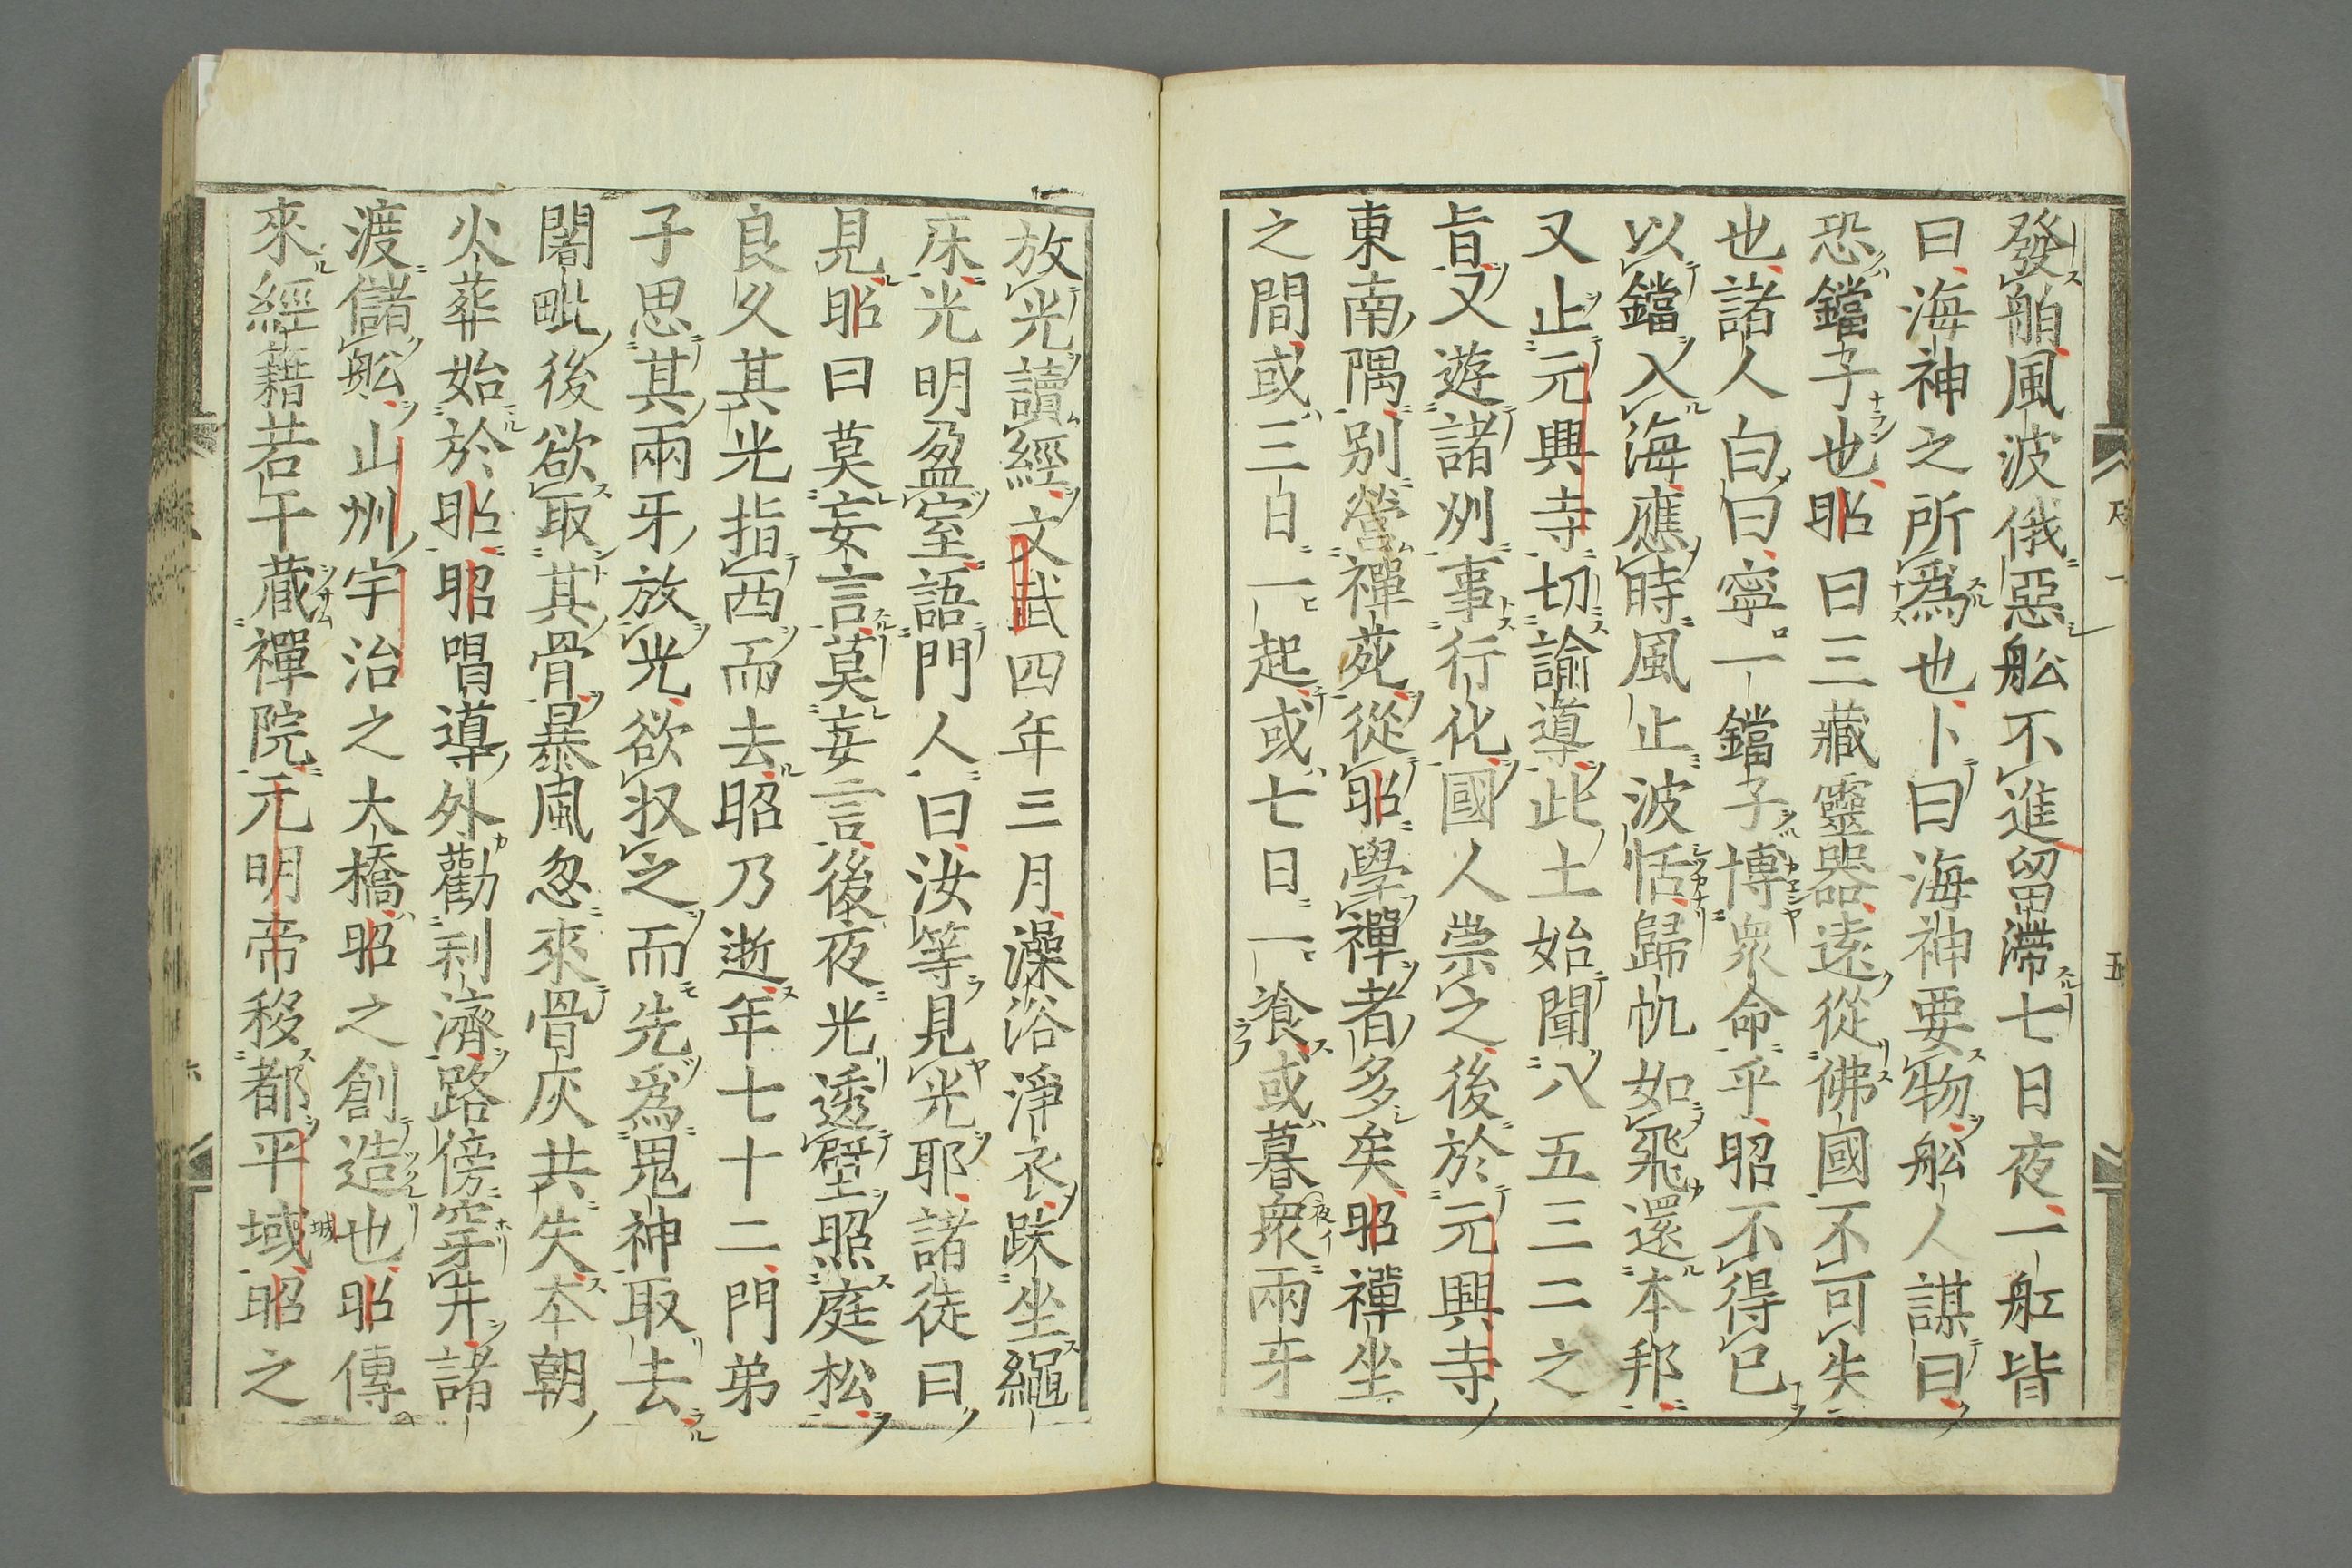 發舶風波俄惡舩不進留滯七日夜一舡皆
曰海神之所爲也卜曰海神要物舩人謀曰
恐鐺子也昭曰三藏靈器遠從佛國不可失
也諸人白曰寧一鐺子博衆命乎昭不得已
以鐺入海應時風止波恬歸帆如飛還本邦
又止元興寺切諭導此土始聞八五三二之
旨又遊諸州事行化國人崇之後於元興寺
東南隅別營禪苑從昭學禪者多矣昭禪坐
之間或三日一起或七日一飡或暮衆兩牙
放光讀經文武四年三月澡浴淨衣趺坐繩
床光明盈室語門人曰汝等見光耶諸徒曰
見昭曰莫妄言莫妄言後夜光透壁照庭松
良久其光指西而去昭乃逝年七十二門弟
子思其兩牙放光欲収之而先爲鬼神取去
闍毗後欲取其骨暴風忽來骨灰共失本朝
火葬始於昭昭唱導外勸利濟路傍穿井諸
渡儲舩山州宇治之大橋昭之創造也昭傳
來經籍若干藏禪院元明帝移都平域昭之